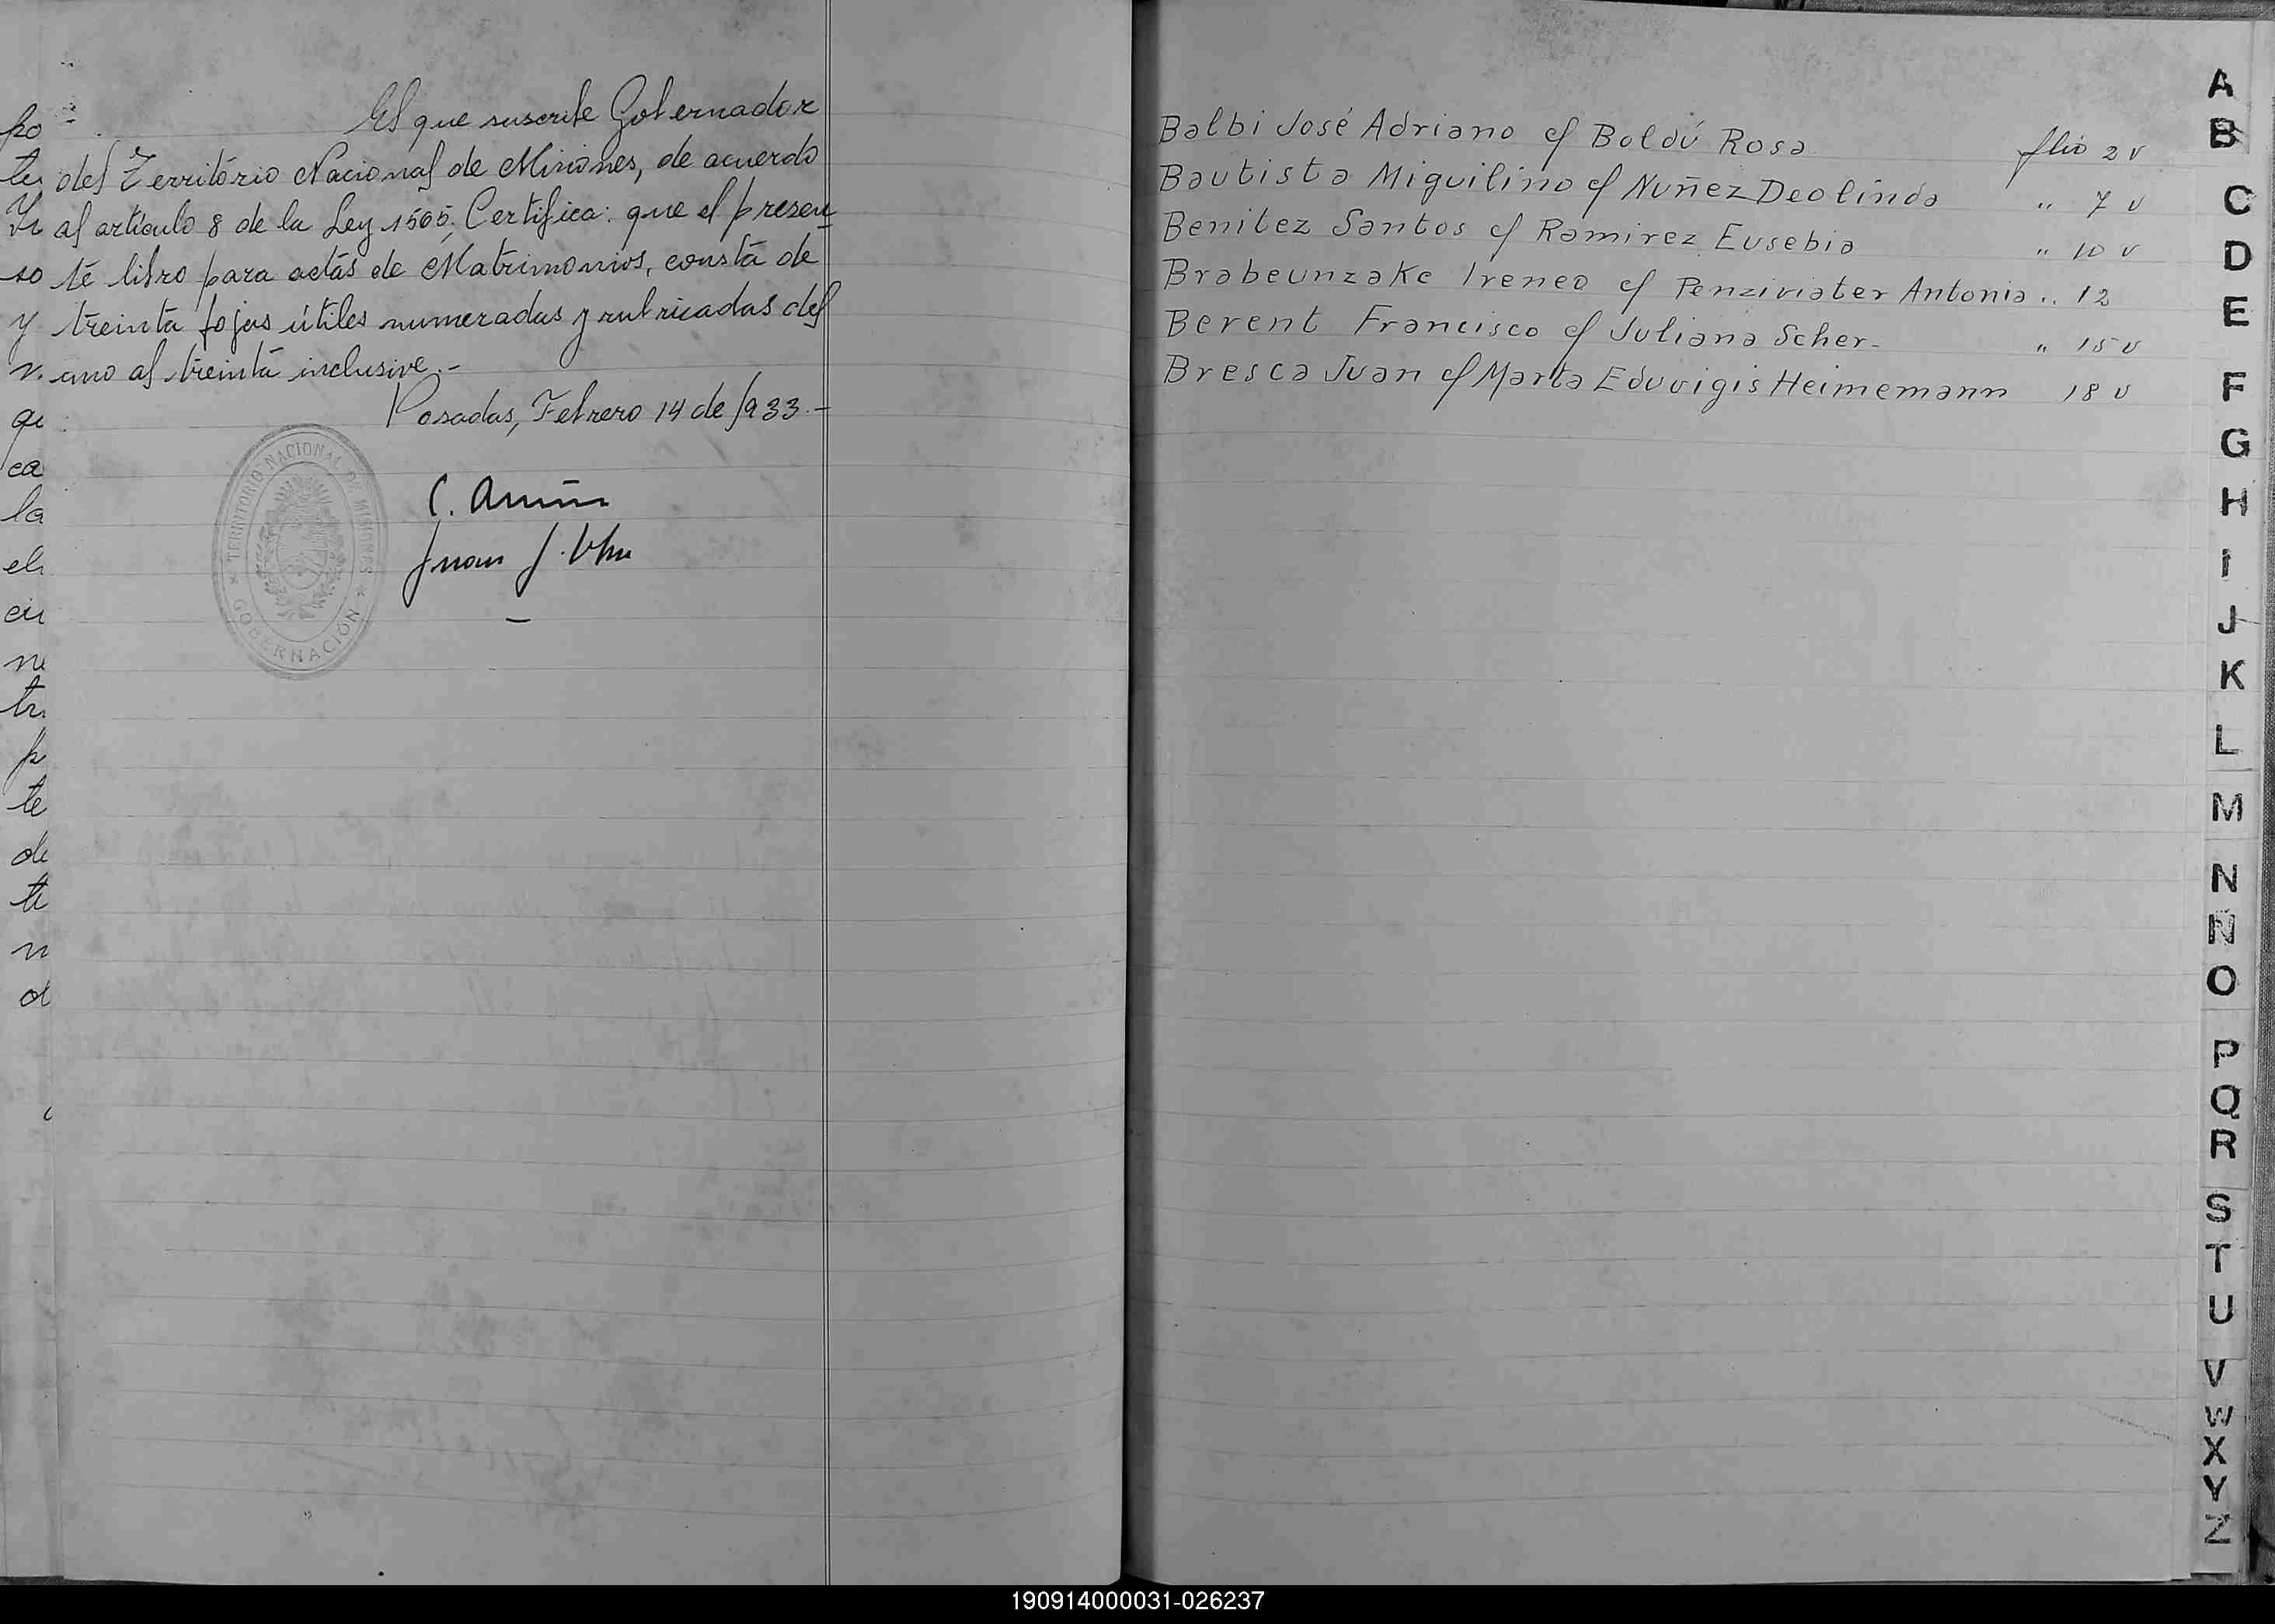 El que suscribe Gobernador
del Território Nacional de Misiones, de acuerdo
al artículo 8 de la Ley 1565, Certifica: que el presen-
te libro para actas de Matrimonios, consta de
treinta fojas útiles numeradas y rubricadas del
uno al treinta inclusive.-
Posadas, Febrero 14 de 1933.-
TERRITORIO NACIONAL DE MISIONES
GOBERNACIÓN
C.
Juan J.
po
te
so
y
n.
qu
ca
la
el
cu
ne
tr
p
te
de
te
n
d
Balbi José Adriano c/ Boldú Rosa flio 2 v
Bautista Miguilino c/ Nuñez Deolinda " 7 v
Benitez Santos c/ Ramirez Eusebia " 10 v
Brabeunzake Ireneo c/ Penziviater Antonia " 12
Berent Francisco c/ Juliana Scher- " 15 v
Bresca Juan c/ Marta Eduvigis Heimemann 18 v
A
B
C
D
E
F
G
H
I
J
K
L
M
N
Ñ
O
P
Q
R
S
T
U
V
W
X
Y
Z
190914000031-026237